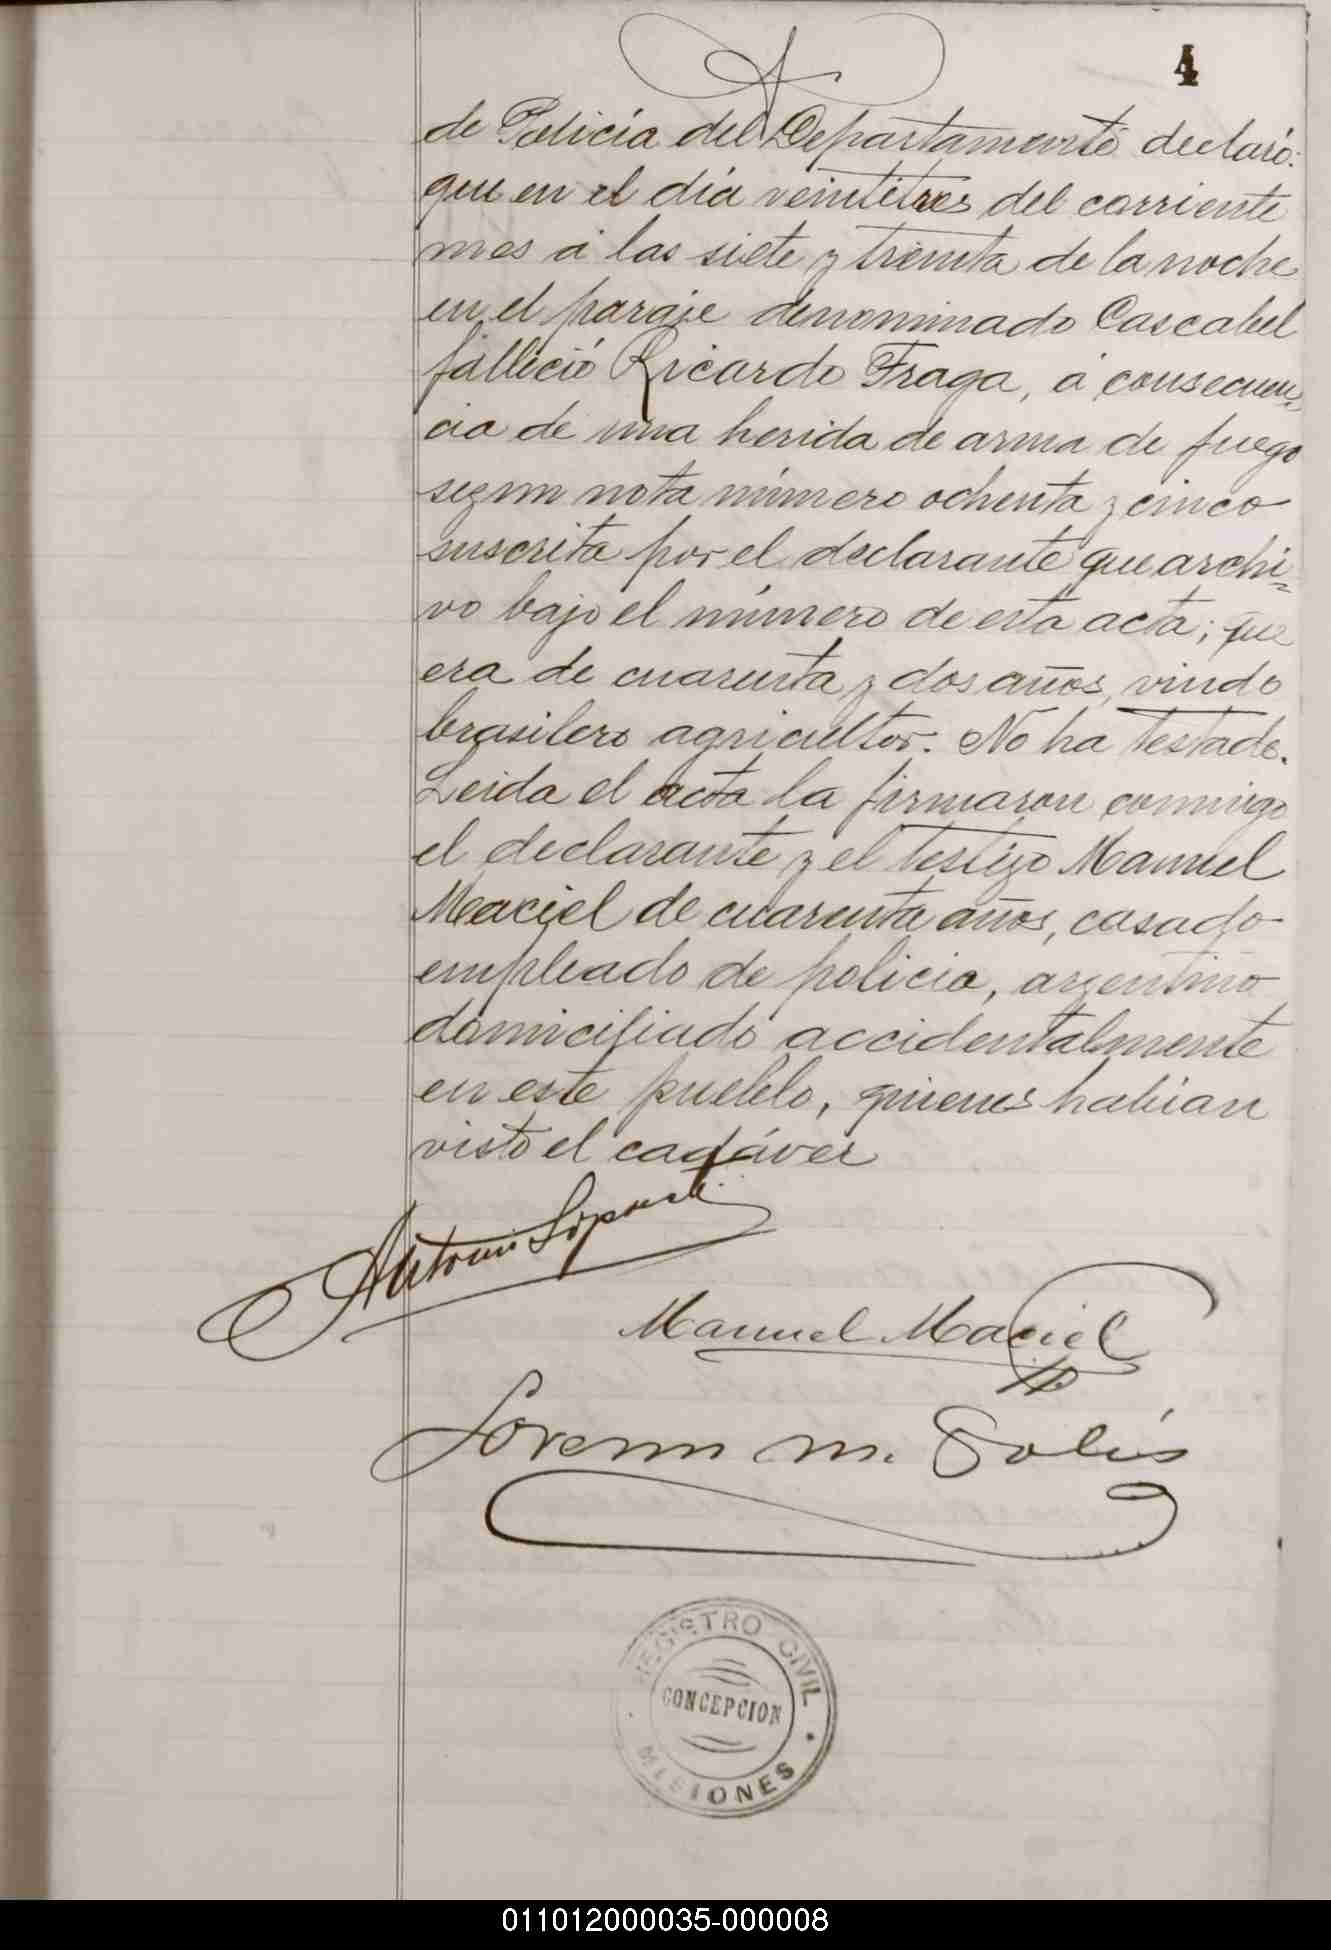 4
de Policía del Departamento declaró:
que en el día veintitres del corriente
mes á las siete y treinta de la noche
en el paraje denominado Cascabel
falleció Ricardo Fraga, á consecuen-
cia de una herida de arma de fuego
segun nota número ochenta y cinco
suscrita por el declarante que archi-
vo bajo el número de esta acta; que
era de cuarenta y dos años, viudo
brasilero agricultor. No ha testado.
Leida el acta la firmaron conmigo
el declarante y el testigo Manuel
Maciel de cuarenta años, casado
empleado de policia, argentino
domiciliado accidentalmente
en este pueblo, quienes habian
visto el cadáver
Antonio
Manuel Maciel
m. Solis
REGISTRO CIVIL
CONCEPCION
MISIONES
011012000035-000008